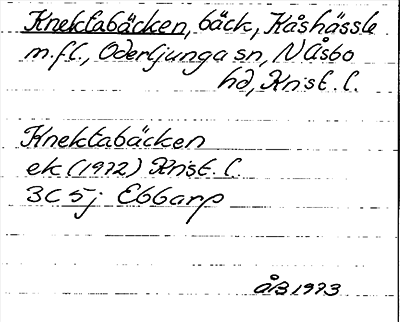 Knektabäcken, bäck, Kåshässle
m.fl., Oderljunga sn, N Åsbo
hd, Krist. l.
Knektabäcken
ek (1972) Krist. l.
3C 5j Ebbarp
ÅB 1973